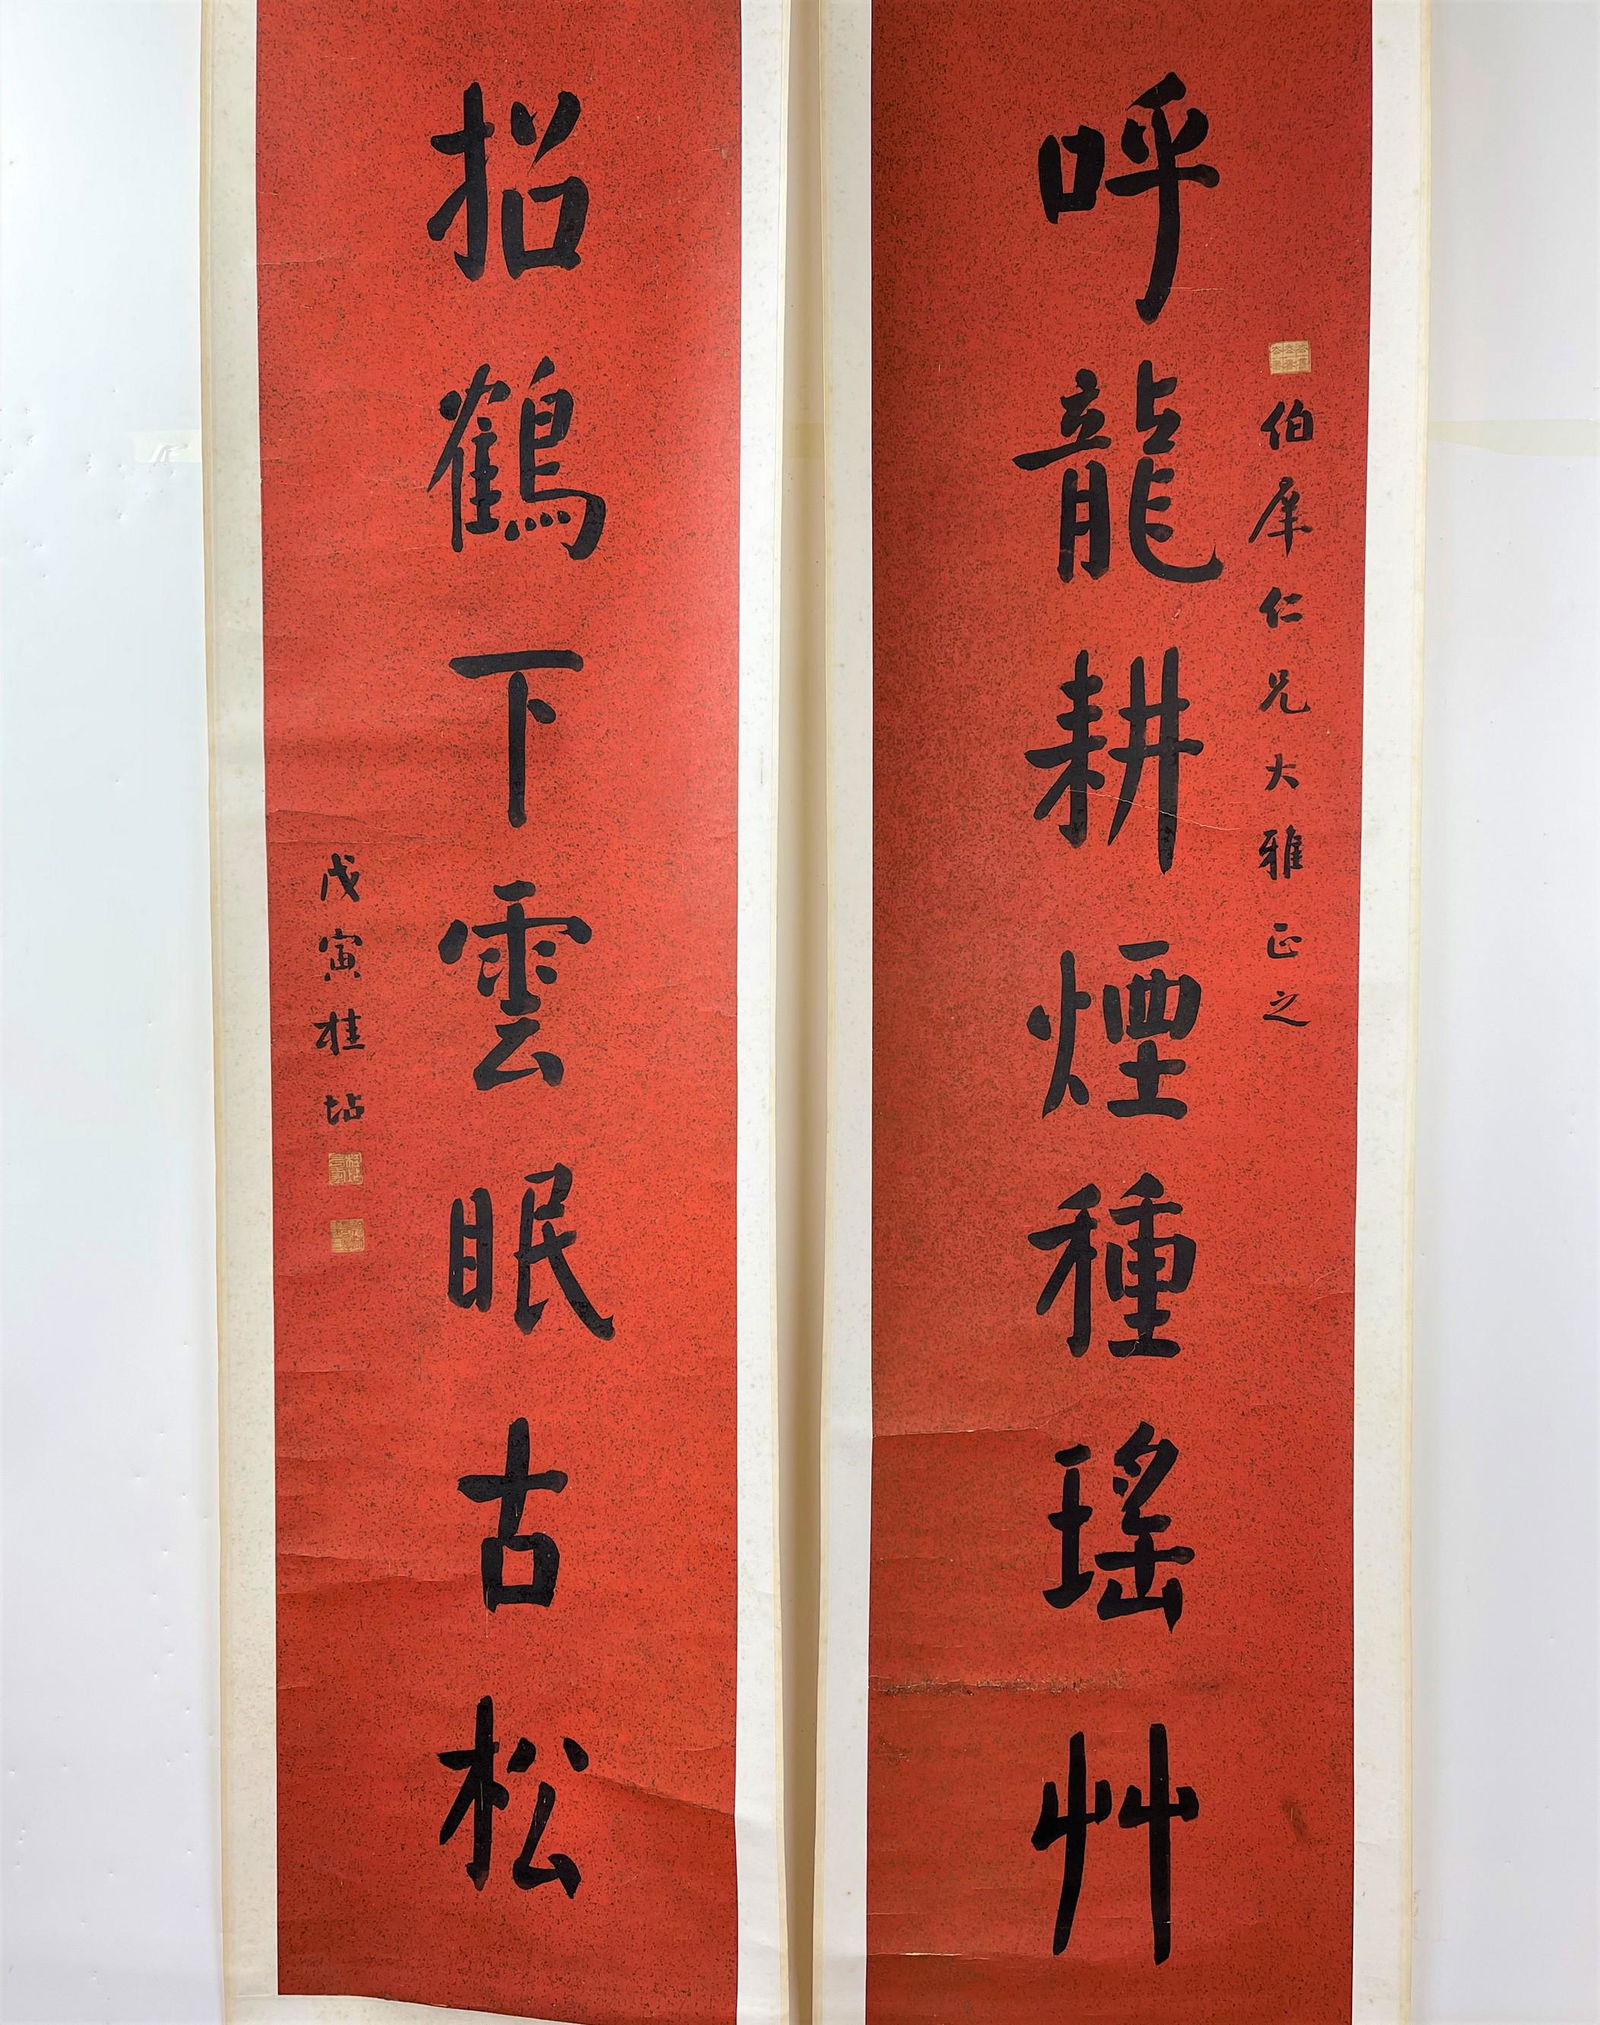 伯犀仁兄大雅正之
呼龍耕煙種瑤艸
招鶴下雲眠古松
戊寅桂坫